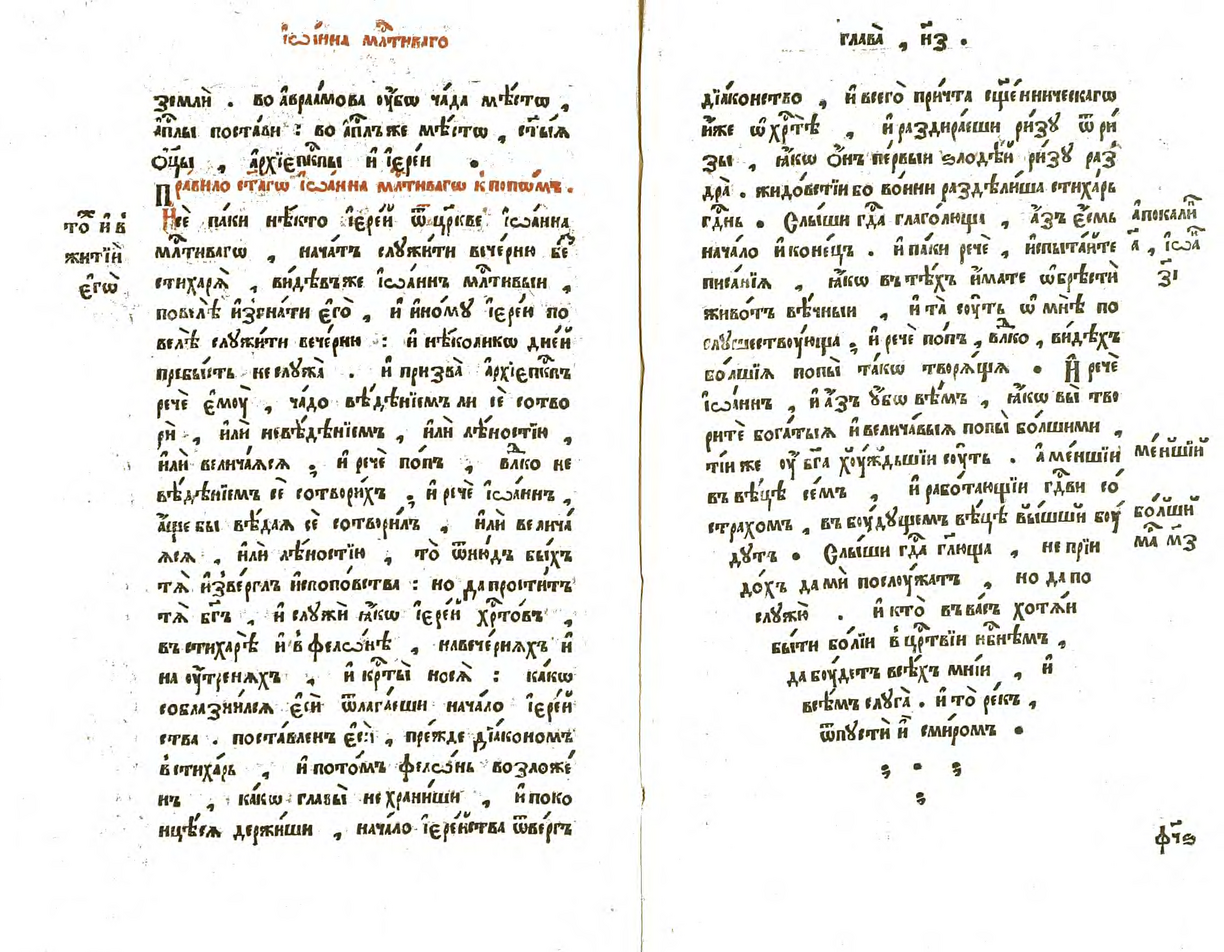 їѡа́нна мл҇тиваго
землѝ . во а҆враа́мова ᲂу҆́бѡ ча́да мѣ́стѡ ,
а҆п҇лы поста́ви : во а҆п҇лъже мѣ́стѡ , ст҃ы́ѧ
ѻ҆ц҃ы̀ , а҆рхїе҆п҇кпы и҆ і҆ере́и .
Пра́вило ст҃а́гѡ їѡа́нна мл҇тивагѡ к попѡ́мъ .
Нѣ́ паки нѣ́кто і҆ере́й ѿ цр҃кве їѡа́нна
мл҇тивагѡ , нача́тъ слꙋжи́ти вече́рню бе
стихарѧ̀ , ви́дѣвъже їѡа́ннъ мл҇тивыи ,
повелѣ̀ и҆згна́ти е҆го̀ , и҆ и҆но́мꙋ і҆ере́ю по
велѣ̀ слꙋжи́ти вече́рню : и҆ нѣ́коликѡ дне́й
пребы́сть неслꙋжа̀ . и҆ призва̀ а҆рхїе҆п҇кпъ
речѐ е҆мꙋ̀ , ча́до вѣ́дѣнїемъ ли сѐ сотво
рѝ , и҆лѝ невѣ́дѣнїемъ , и҆лѝ лѣ́ностїю ,
и҆лѝ велича́ѧсѧ ; и҆ речѐ по́пъ , влⷣко не
вѣ́дѣнїемъ сѐ сотвори́хъ ; и҆ речѐ їѡа́ннъ ,
а҆́ще бы вѣ́даѧ сѐ сотвори́лъ , и҆лѝ велича́
ѧсѧ , и҆лѝ лѣ́ностїю , то̀ ѿню́дъ бы́хъ
тѧ̀ и҆зве́рглъ и҆с попо́вства : но да прости́тъ
тѧ̀ бг҃ъ , и҆ слꙋжѝ ꙗ҆́кѡ і҆ере́й хрⷭ҇то́въ ,
въ стихарѣ̀ и҆ в̾ фелѡ́нѣ , на вече́рнѧхъ и҆
на ᲂу҆́тренѧхъ , и҆ крⷭ҇ты̀ носѧ̀ : ка́кѡ
соблазни́лсѧ е҆сѝ ѿлага́еши нача́ло і҆ере́й
ства . поста́вленъ е҆сѝ , пре́жде дїа́кономъ
в̾ стиха́рь , и҆ пото́мъ фелѡ́нь возложе́
нъ , ка́кѡ главы̀ не храни́ши , и҆ поко
и҆щесѧ держи́ши , нача́ло і҆ере́йства ѿве́ргъ
то́ⷤ и҆ в
житїи҆
е҆гѡ̀
глава̀ , н҃з .
дїа́конство , и҆ всего̀ при́чта сщ҃е́нническагѡ
и҆́же ѡ҆ хрⷭ҇тѣ̀ , и҆ раздира́еши ри́зꙋ ѿ ри́
зы , ꙗ҆́кѡ ѻ҆́нъ пе́рвыи ѕлодѣ́й ри́зꙋ раз
дра̀ . жидо́встїи бо во́ини раздѣли́ша стиха́рь
гдⷭ҇нь . Слы́ши гдⷭ҇а глаго́люща , а҆́зъ е҆́смь
нача́ло и҆ коне́цъ . и҆ па́ки речѐ , и҆спыта́йте
писа́нїѧ , ꙗ҆́кѡ въ тѣ́хъ и҆́мате ѡ҆брѣстѝ
живо́тъ вѣ́чныи , и҆ та̀ сꙋ́ть ѡ҆ мнѣ̀ по
слꙋ́шествꙋюща ; и҆ речѐ по́пъ , влⷣко , ви́дѣхъ
бо́лшїѧ попы̀ та́кѡ творѧ́щѧ . И҆ речѐ
їѡа́ннъ , и҆ а҆́зъ ᲂу҆́бѡ вѣ́мъ , ꙗ҆́кѡ вы̀ тво
ритѐ бога́тыѧ и҆ велича́выѧ попы̀ бо́лшими ,
ті́и же ᲂу҆ бг҃а хꙋ́ждьшїи сꙋ́ть . а ме́ншїи
въ вѣ́цѣ се́мъ , и҆ рабо́тающїи гдⷭ҇ви со́
стра́хомъ , въ бꙋ́дꙋщемъ вѣ́цѣ вы́шшїи бꙋ́
дꙋтъ . Слы́ши гдⷭ҇а гл҃юща , не прїи
до́хъ да мѝ послꙋ́жатъ , но да по
слꙋжꙋ̀ . и҆ кто̀ въ ва́съ хотѧ́и
бы́ти бо́лїи в̾ црⷭ҇твїи нбⷭ҇нѣмъ ,
да бꙋ́детъ всѣ́хъ мні́и , и҆
всѣ́мъ слꙋга̀ . и҆ то̀ ре́къ ,
ѿпꙋстѝ и҆̀ с ми́ромъ .
а҆покалі́
а҃ , їѡⷩ҇а
з҃і
ме́ншїй
бо́лшїй
ма҇ѳ м҃з
ф҃ч҃ѕ